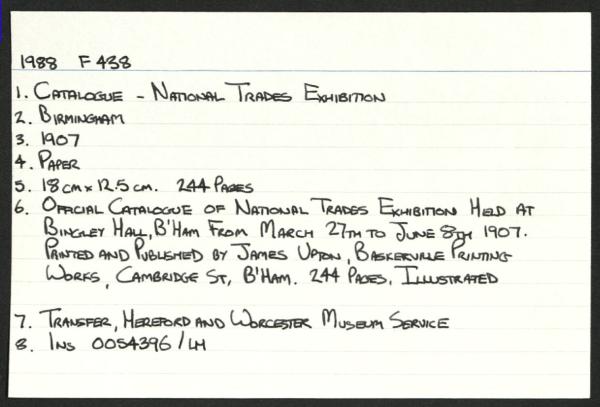 1988 F 438
1. CATALOGUE - NATIONAL TRADES EXHIBITION
2. BIRMINGHAM
3. 1907
4. PAPER
5. 18cm x 12.5cm. 244 PAGES
6. OFFICIAL CATALOGUE OF NATIONAL TRADES EXHIBITION HELD AT
BINGLEY HALL, B'HAM FROM MARCH 27TH TO JUNE 8TH 1907.
PRINTED AND PUBLISHED BY JAMES UPTON, BASKERVILLE PRINTING
WORKS, CAMBRIDGE ST, B'HAM. 244 PAGES. ILLUSTRATED
7. TRANSFER, HEREFORD AND WORCESTER MUSEUM SERVICE
8. INS 0054396/LM